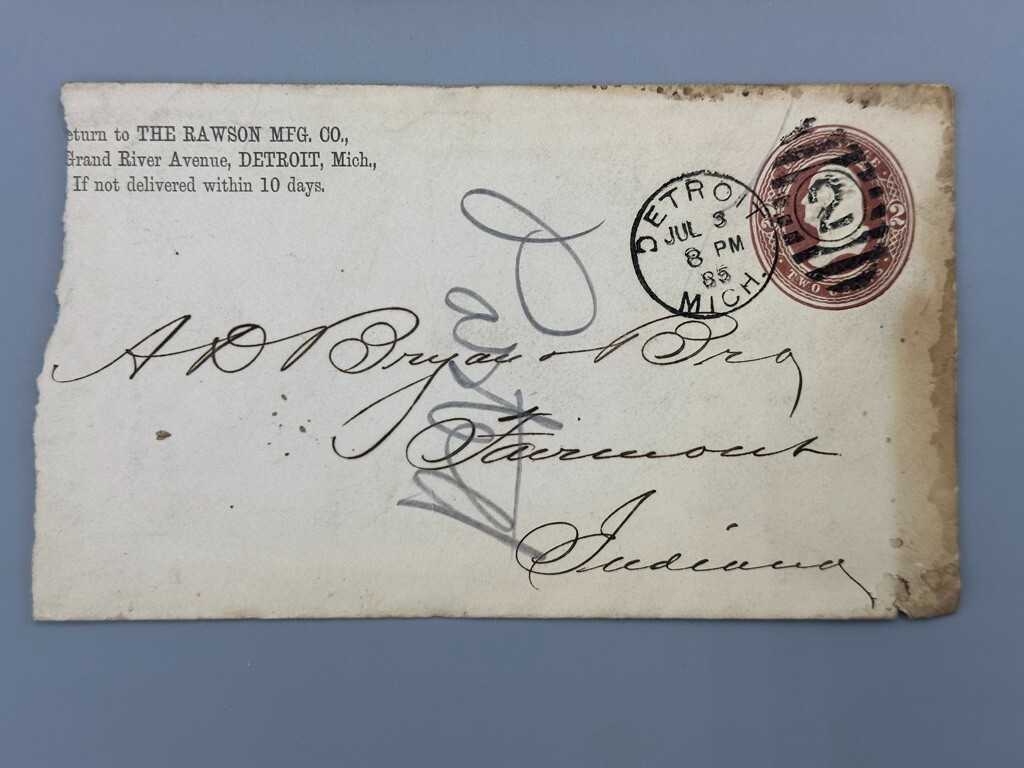 eturn to THE RAWSON MFG. CO.,
Grand River Avenue, DETROIT, Mich.,
If not delivered within 10 days.
DETROIT
JUL 3
8 PM
85
MICH.
2
TWO
A D Bryan & Bro
Fairmont
Indiana